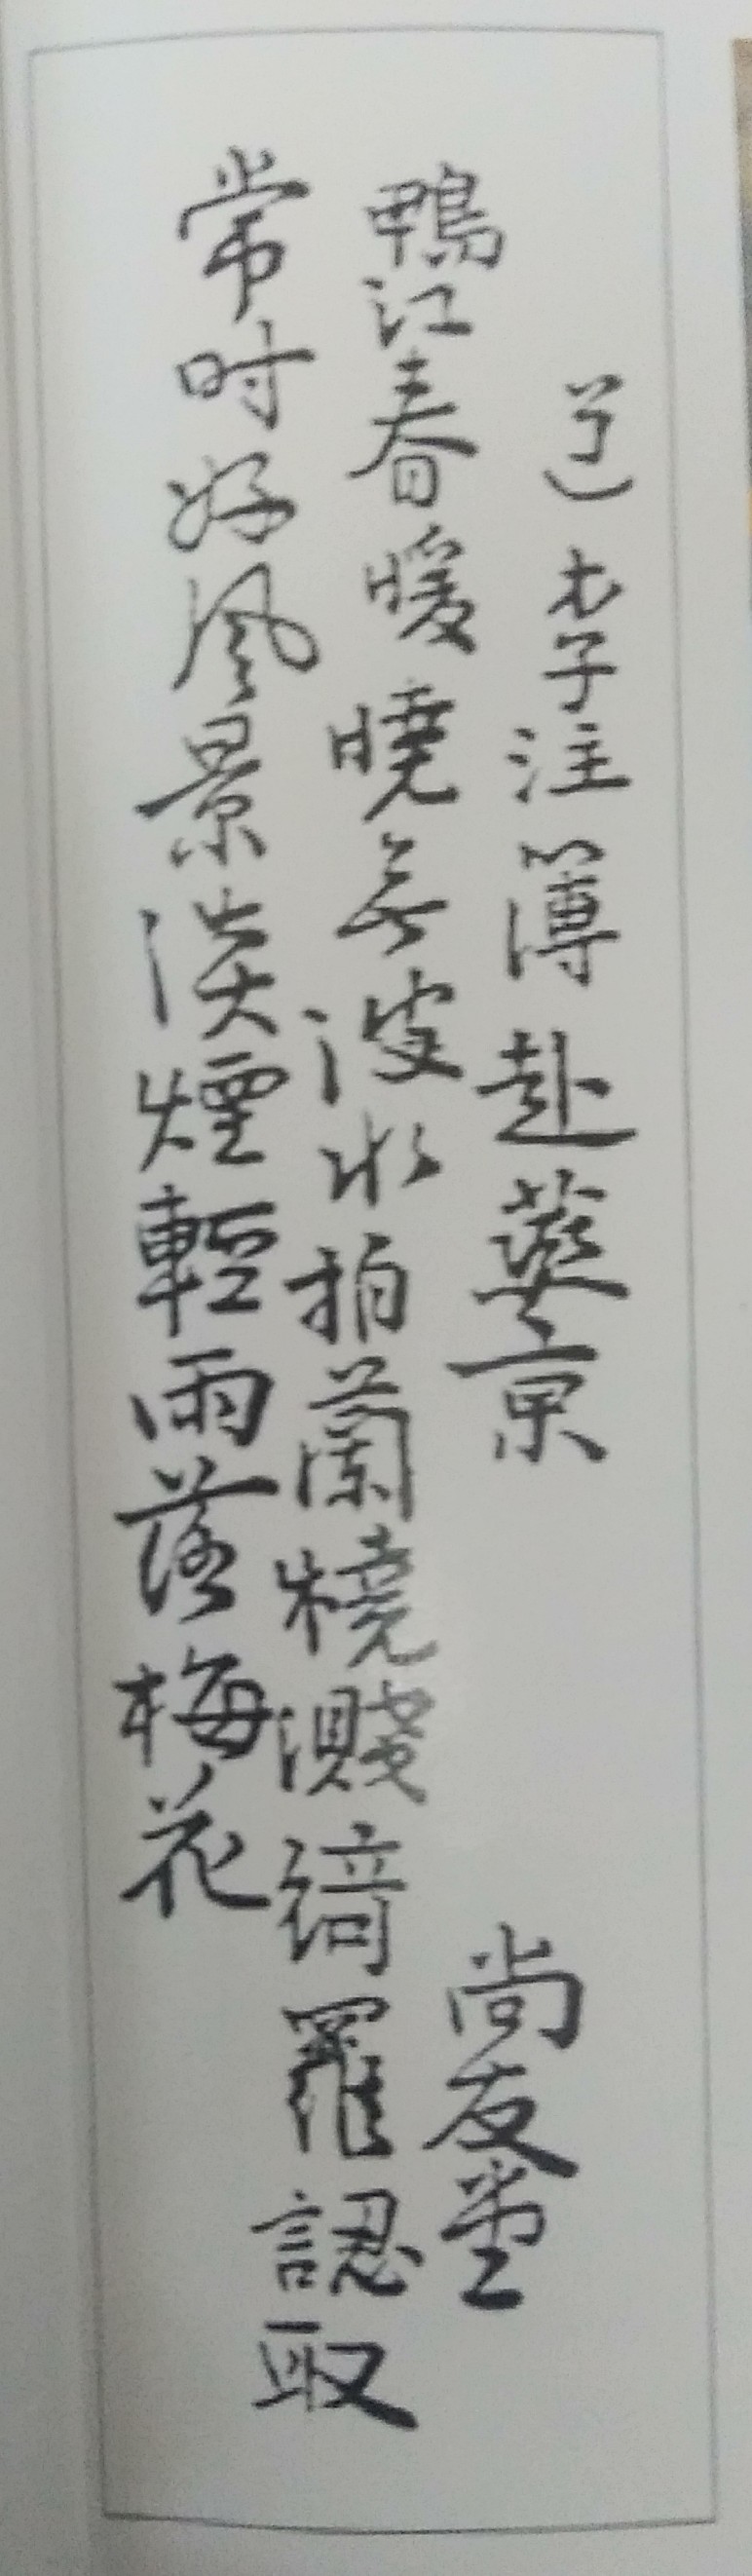 送李注簿赴燕京 尚友堂
鴨江春暖曉無波水拍蘭橈濺綺羅認取
常時好風景淡煙輕雨落梅花